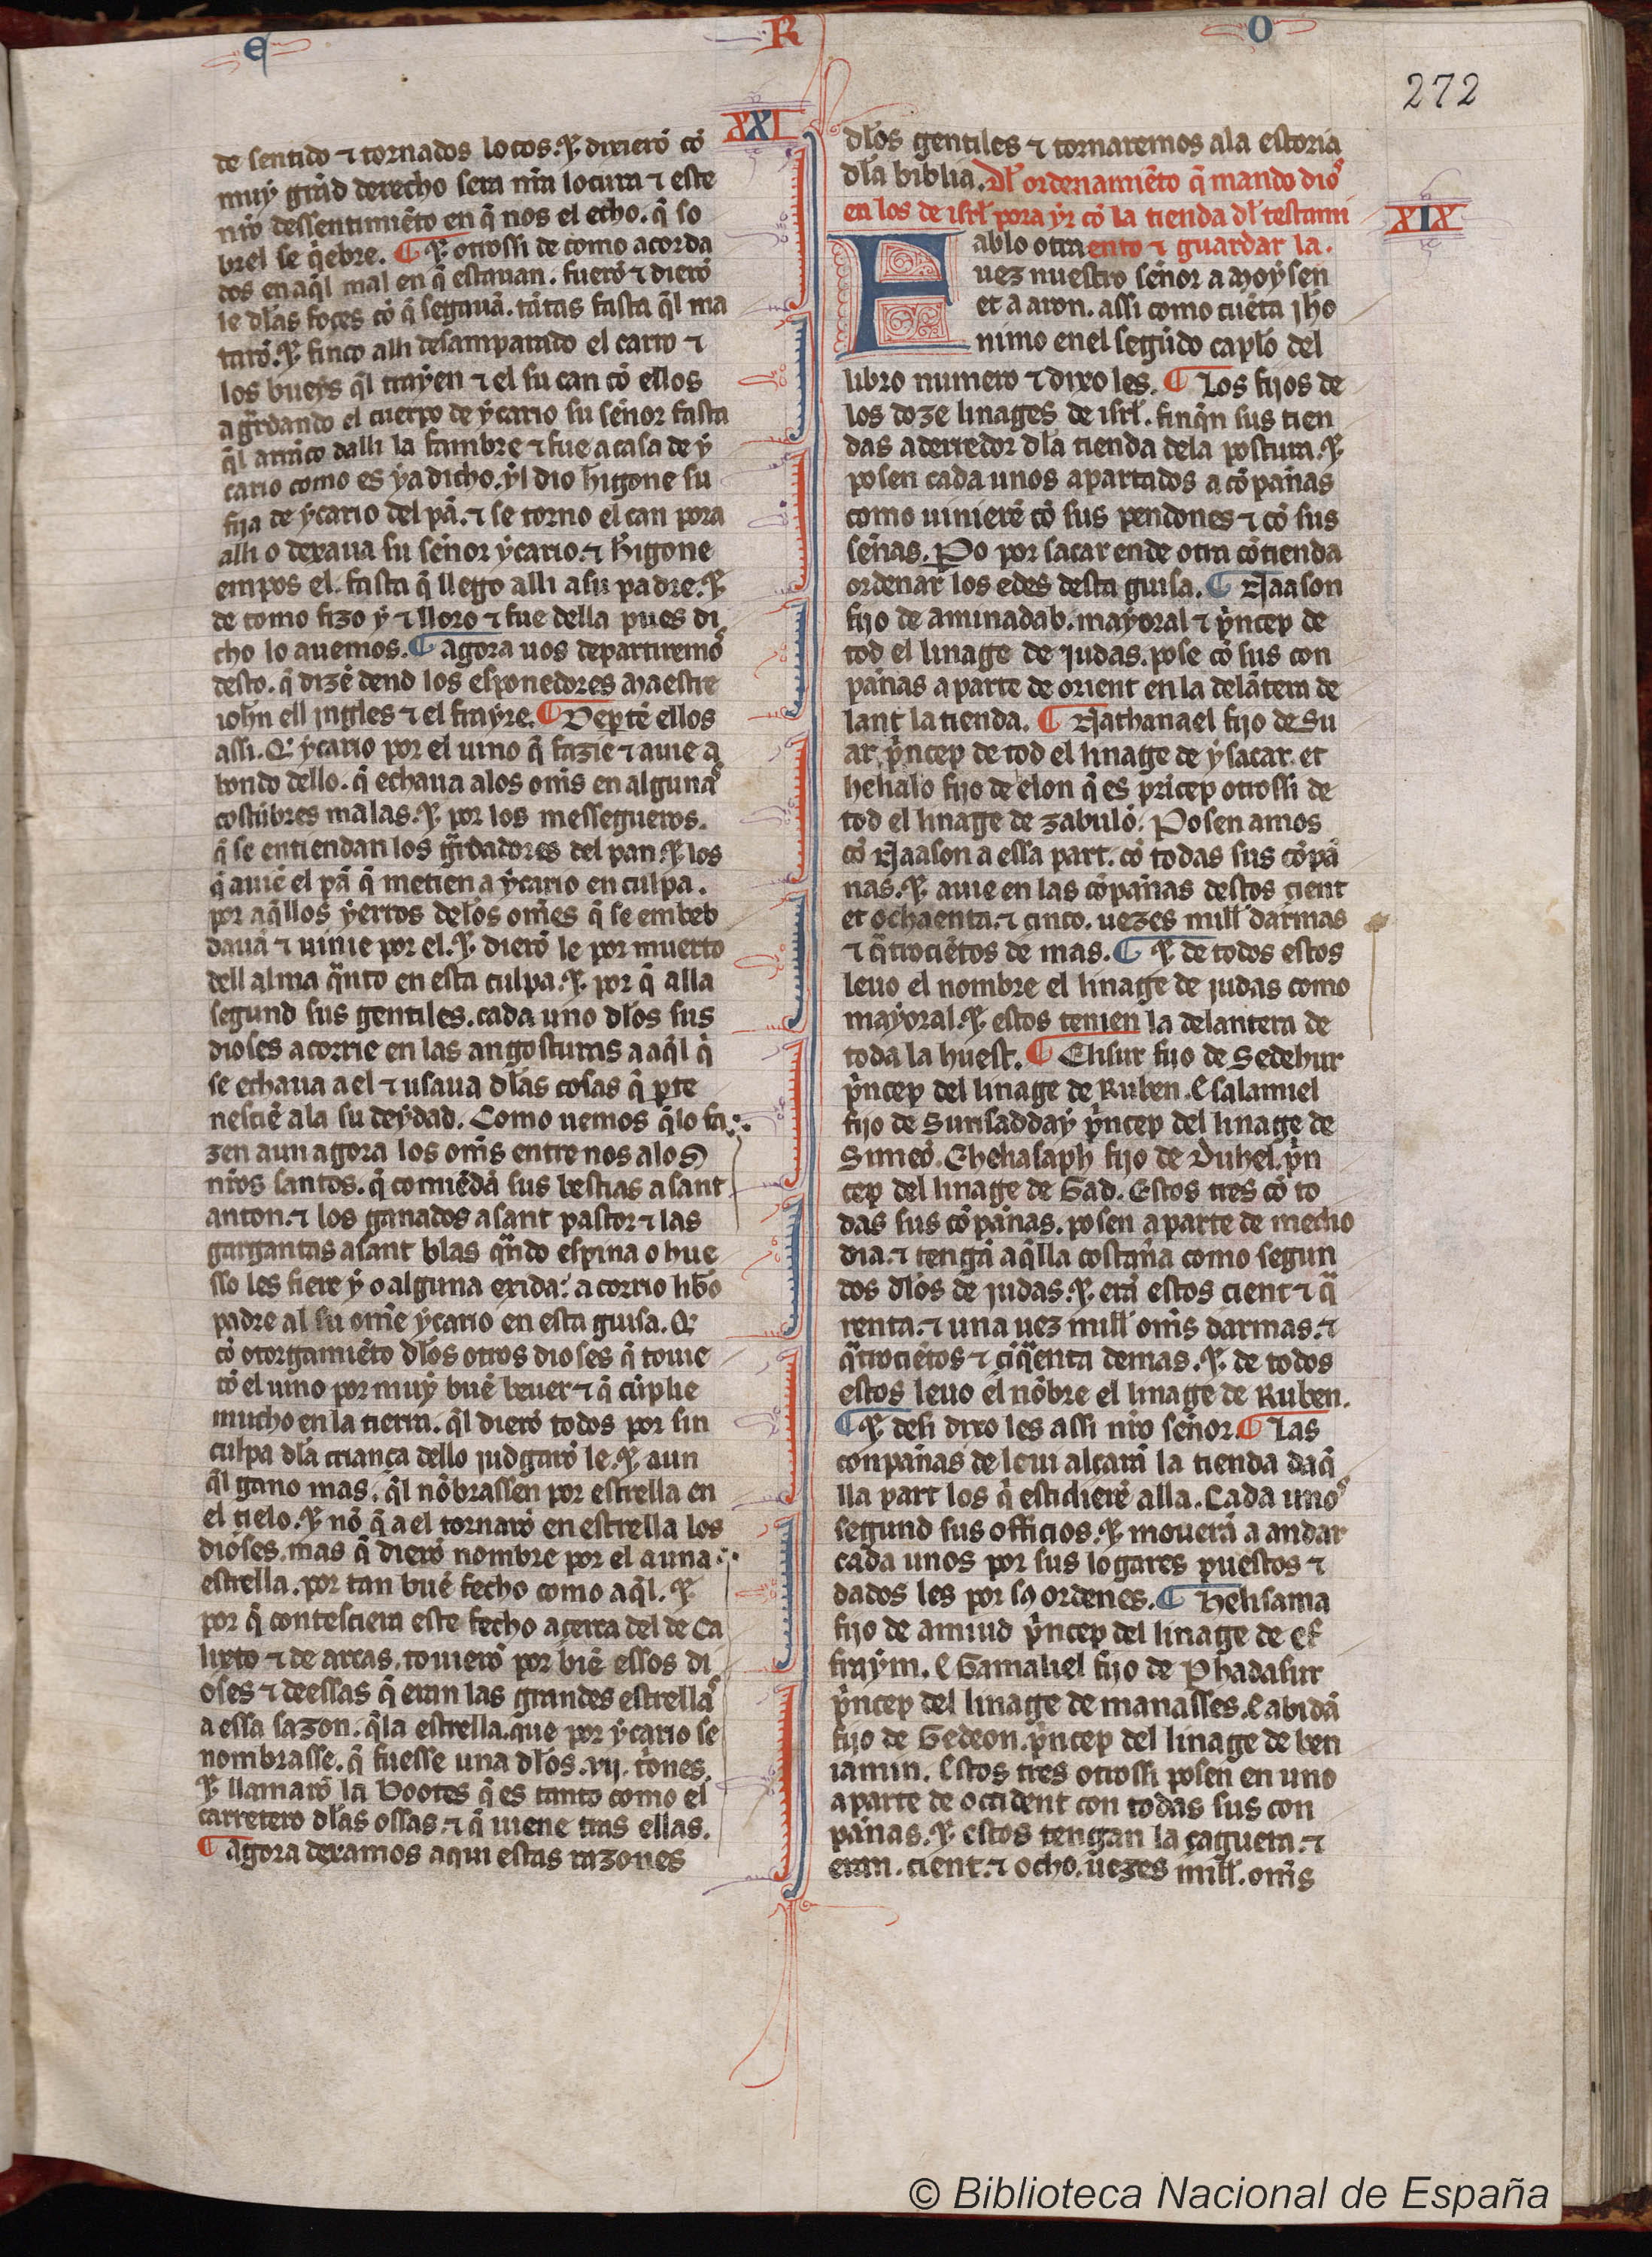 E R O
272
XXI
de sentido ⁊ tornados locos. ⁊ dixierõ cõ
muy grãd derecho sera nr̃a locura ⁊ este
nr̃o dessentimiẽto en q̃ nos el echo. q̃ so
brel se q̃ebre. ¶ ⁊ otrossi de como acorda
dos enaq̃l mal en q̃ estauan. fuerõ ⁊ dierõ
le dl̃as foçes cõ q̃ segauã. tãtas fasta q̃l ma
tarõ. ⁊ finco alli desamparado el carro ⁊
los bueys q̃l trayen ⁊ el su can cõ ellos
agr̃dando el cuerpo de ycario su señor fasta
q̃l arrãco dalli la fambre ⁊ fue a casa de y
cario como es ya dicho. yl dio h̃igone su
fija de ycario del pã. ⁊ se torno el can pora
alli o dexaua su señor ycario. ⁊ h̃igone
empos el. fasta q̃ llego alli a su padre. ⁊
de como fizo y ⁊ lloro ⁊ fue della pues di
cho lo auemos. ¶ agora uos departiremos
desto. q̃ dizẽ dend los esponedores maestre
ioh̃n ell jngles ⁊ el frayre. ¶ Deptẽ ellos
assi. Q̃ ycario por el uino q̃ fazie ⁊ auie a
bondo dello. q̃ echaua alos om̃s en algunas
costũbres malas. ⁊ por los messegueros.
q̃ se entiendan los gr̃dadores del pan. ⁊ los
q̃ auiẽ el pã q̃ metien a ycario en culpa.
por aq̃llos yerros del̃os om̃es q̃ se embeb
dauã ⁊ uinie por el. ⁊ dierõ le por muerto
dell alma q̃nto en esta culpa. ⁊ por q̃ alla
segund sus gentiles. cada uno dl̃os sus
dioses acorrie en las angosturas a aq̃l q̃
se echaua a el ⁊ usaua dl̃as cosas q̃ pte
nesciẽ ala su deydad. Como uemos q̃lo fa
zen aun agora los om̃s entre nos alos
nr̃os santos. q̃ comiẽdã sus bestias a sant
anton. ⁊ los ganados a sant pastor ⁊ las
gargantas a sant blas q̃ndo espina o hue
sso les fiere y o alguna erida: acorrio lib̃o
padre al su om̃e ycario en esta guisa. Q̃
cõ otorgamiẽto dl̃os otros dioses q̃ touie
cõ el uino por muy buẽ beuer ⁊ q̃ cũplie
mucho en la tierra. q̃l dierõ todos por sin
culpa dl̃a criança dello judgarõ le. ⁊ aun
q̃l gano mas. q̃l nõbrassen por estrella en
el cielo. ⁊ nõ q̃ a el tornarõ en estrella los
dioses. mas q̃ dierõ nombre por el a una
estrella. por tan buẽ fecho como aq̃l. ⁊
por q̃ contesciera este fecho acerca del de Ca
lixto ⁊ de arcas. touierõ por biẽ essos di
oses ⁊ deessas q̃ eran las grandes estrellas
a essa sazon. q̃la estrella. que por ycario se
nombrasse. q̃ fuesse una dl̃os .vij. t̃ones.
⁊ llamarõ la Bootes q̃ es tanto como el
carretero dl̃as ossas. ⁊ q̃ uiene tras ellas.
¶ agora dexamos aqui estas razones
dl̃os gentiles ⁊ tornaremos ala estoria
dl̃a biblia. Dl̃ ordenamiẽto q̃ mando dios
en los de isrl̃ pora yr cõ la tienda dl̃ testami
XIX
Fablo otra ento ⁊ guardar la.
uez nuestro señor a moysen
et a aron. assi como cuẽta jh̃o
nimo en el segũdo capl̃o del
libro numero ⁊ dixo les. ¶ Los fijos de
los doze linages de isrl̃. finq̃n sus tien
das aderredor dl̃a tienda dela postura. ⁊
posen cada unos apartados a cõpañas
como uinierẽ cõ sus pendones ⁊ cõ sus
señas. Po por sacar ende otra cõtienda
ordenar los edes desta guisa. ¶ Naason
fijo de aminadab. mayoral ⁊ p̃ncep de
tod el linage de judas. pose cõ sus con
pañas a parte de orient en la delãtera de
lant la tienda. ¶ Nathanael fijo de Su
ar p̃ncep de tod el linage de ysacar. et
heliab fijo de elon q̃ es pricep otrossi de
tod el linage de zabulõ. Posen amos
cõ Naason a essa part. cõ todas sus cõpã
nas. ⁊ auie en las cõpañas destos cient
et ochaenta. ⁊ cinco. uezes mill darmas
⁊ q̃trociẽtos de mas. ¶ ⁊ de todos estos
leuo el nombre el linage de judas como
mayoral. ⁊ estos tenien la delantera de
toda la huest. ¶ Elisur fijo de Sedehur
p̃ncep del linage de Ruben. E salamiel
fijo de Surisadday p̃ncep del linage de
Simeõ. Ehehasaph fijo de Duhel. p̃n
cep del linage de Gad. Estos tres cõ to
das sus cõpañas. posen a parte de medio
dia. ⁊ tengã aq̃lla costaña como segun
dos dl̃os de judas. ⁊ erã estos cient ⁊ q̃
renta. ⁊ una uez mill om̃s darmas. ⁊
q̃trociẽtos ⁊ ciq̃enta demas. ⁊ de todos
estos leuo el nõbre el linage de Ruben.
¶ ⁊ desi dixo les assi nr̃o señor. ¶ Las
conpañas de leui alçarã la tienda daq̃
lla part los q̃ estidierẽ alla. Cada unos
segund sus officios. ⁊ mouerã a andar
cada unos por sus logares puestos ⁊
dados les por sꝯ ordenes. ¶ Helisama
fijo de amiud p̃ncep del linage de ef
fraym. E Gamaliel fijo de Phadasur
p̃ncep del linage de manasses. E abidã
fijo de Gedeon. p̃ncep del linage de ben
iamin. Estos tres otrossi posen en uno
a parte de occident con todas sus con
pañas. ⁊ estos tengan la çaguera. ⁊
eran. cient. ⁊ ocho. uezes mill. om̃s
© Biblioteca Nacional de España